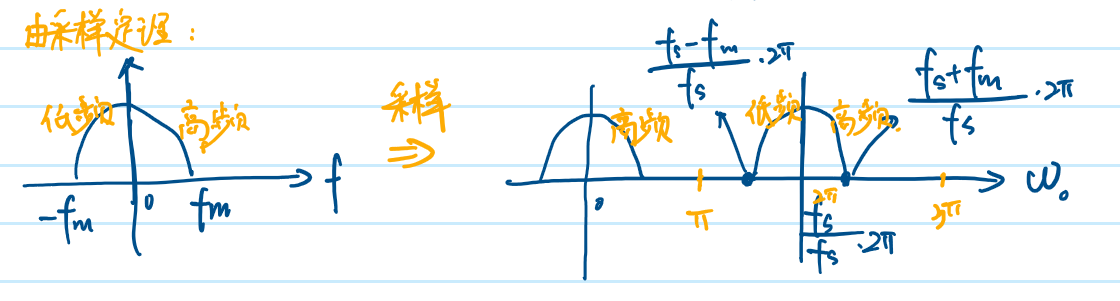 由采样定理：
低频 高频
-fm 0 fm f
采样
(fs-fm)/fs ·2π
(fs+fm)/fs ·2π
高频 低频 高频
0 π 2π 3π ω。
fs/fs ·2π